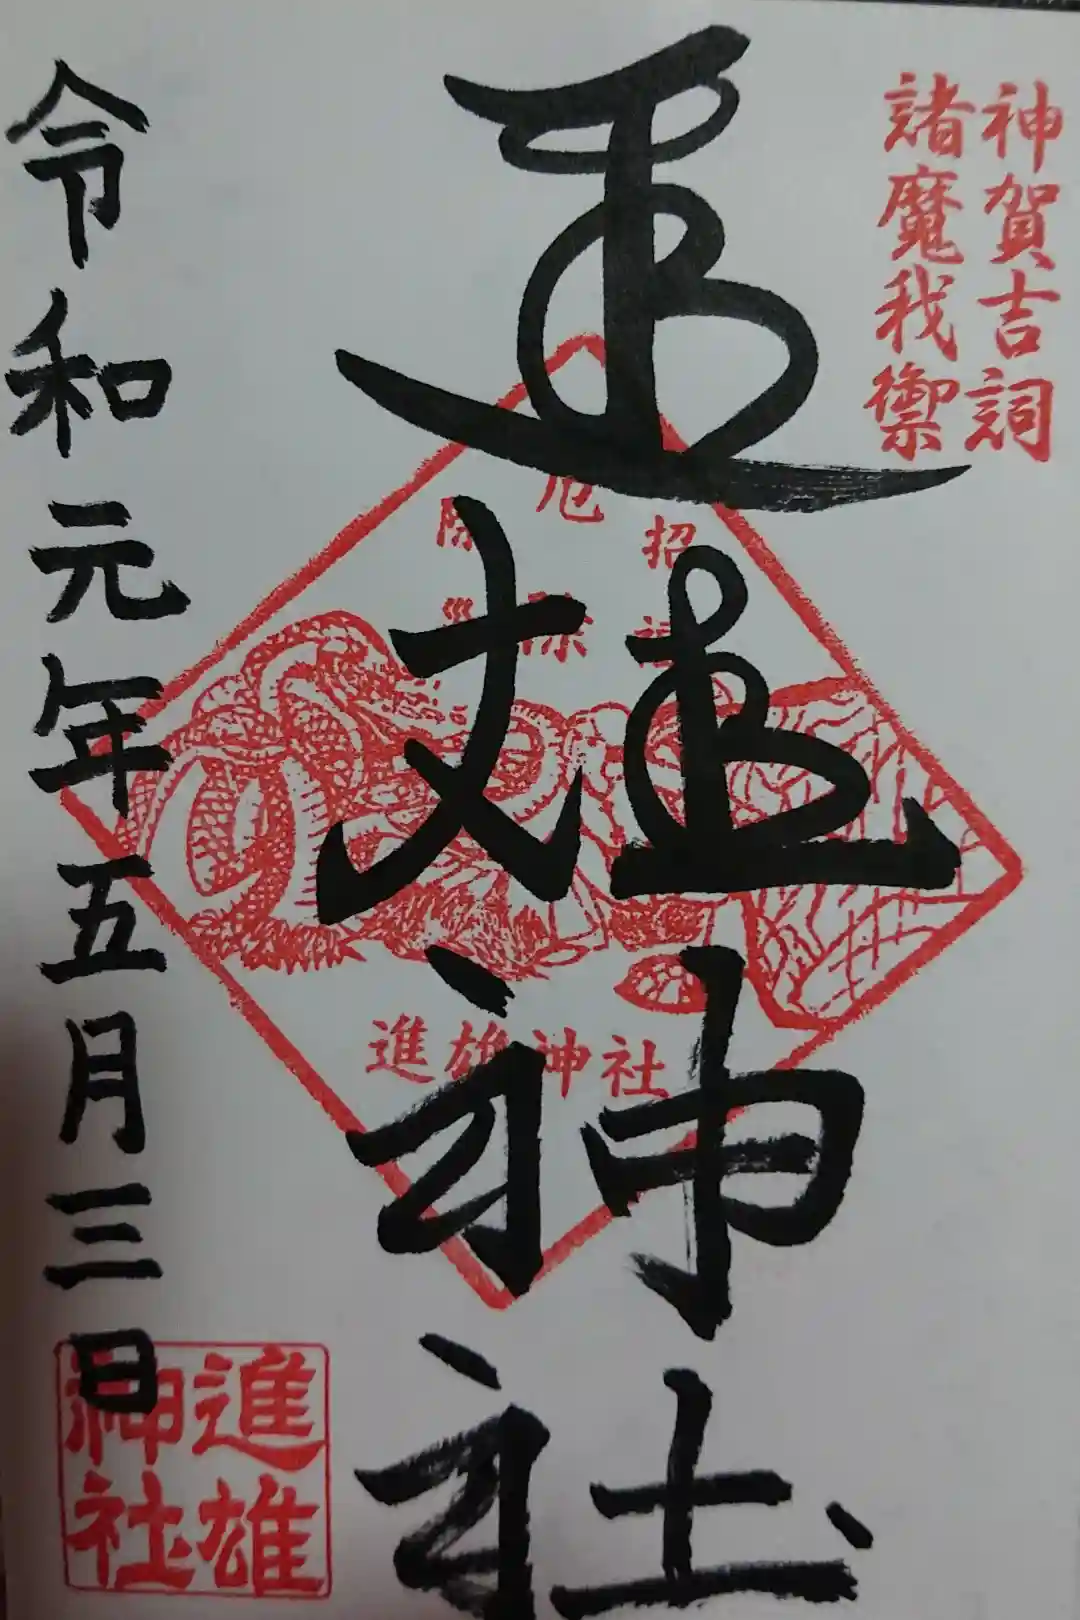 神賀吉詞
諸魔我禦
進雄神社
招福
厄除
除災
進雄神社
令和元年五月三日
進雄
神社